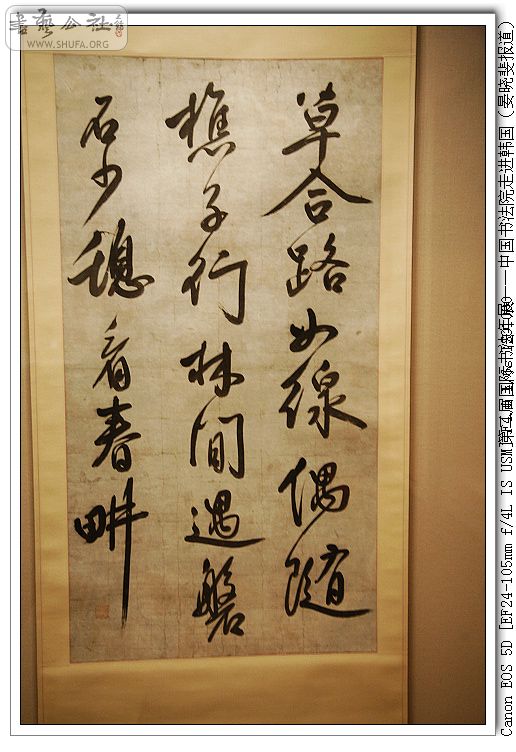 書藝公社
WWW.SHUFA.ORG
草合路如線偶随
樵子行林間遇磐
石少憩看春畊
Canon EOS 5D [EF24-105mm f/4L IS USM]
国际书法年展——中国书法院走进韩国（晏晓斐报道）